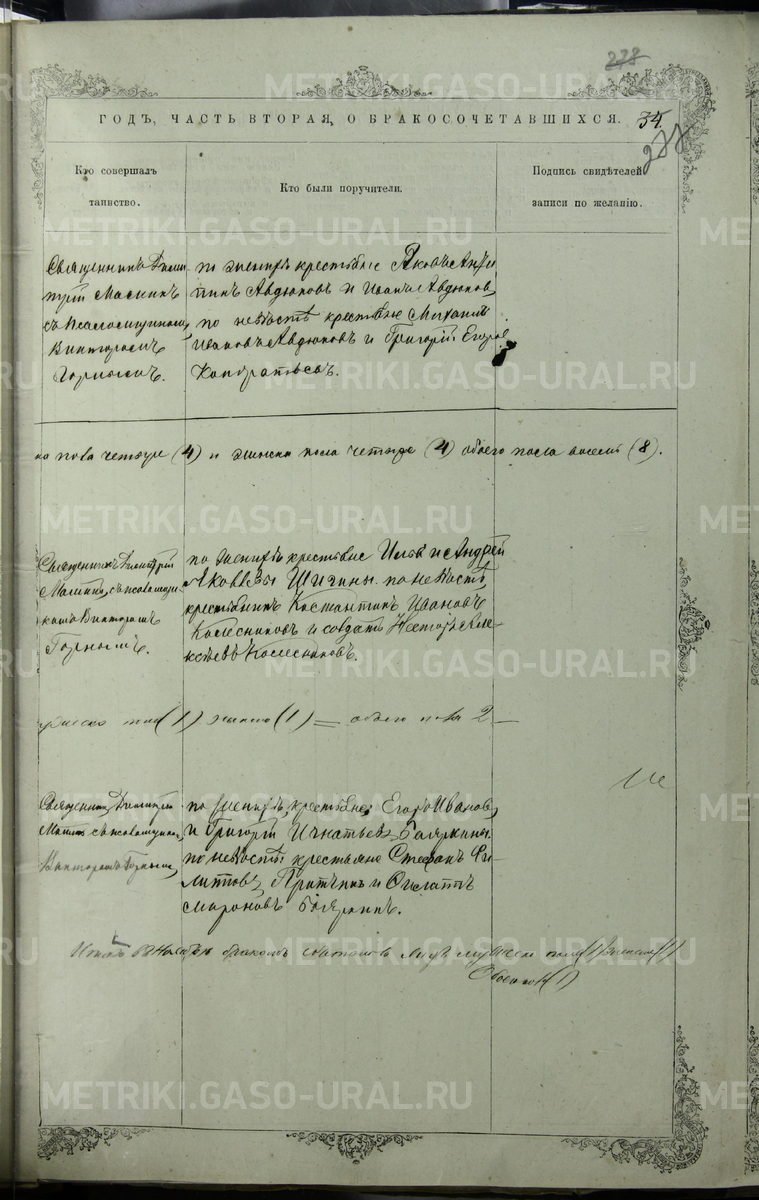 238
ГОДЪ, ЧАСТЬ ВТОРАЯ, О БРАКОСОЧЕТАВШИХСЯ.
35
288
Кто совершалъ
таинство.
Кто были поручители.
Подпись свидѣтелей
записи по желанію.
METRIKI.GASO-URAL.RU
Священникъ Дими
трій Малинъ
съ псаломщикомъ
Викторомъ
Горнымъ.
по женихѣ крестьяне Яковъ Анти
пинъ Авдюковъ и Иванъ Авдюковъ,
по невѣстѣ крестьяне Михаилъ
Ивановъ Авдюковъ и Григорій Егоровъ
Кондратьевъ.
пола четыре (4) и женска пола четыре (4) обоего пола восемь (8).
Священникъ Димитрій
Малинъ, съ псаломщи
комъ Викторомъ
Горнымъ.
по женихѣ крестьяне Илья и Андрей
Яковлевы Шигины. по невѣстѣ
крестьянинъ Константинъ Ивановъ
Колесниковъ и солдатъ Несторъ Але
ксѣевъ Колесниковъ.
(1) (1) = обоего пола 2
Священникъ Димитрій
Малинъ съ псаломщикомъ
Викторомъ Горнымъ,
по женихѣ, крестьяне, Егоръ Ивановъ,
и Григорій Игнатьевъ Бояркины.
по невѣстѣ крестьяне Стефанъ Фи
липповъ, и
Мироновъ Бояркинъ.
Итого въ бракомъ лицъ мужеска пола (1) женска (1)
Обоего (1)